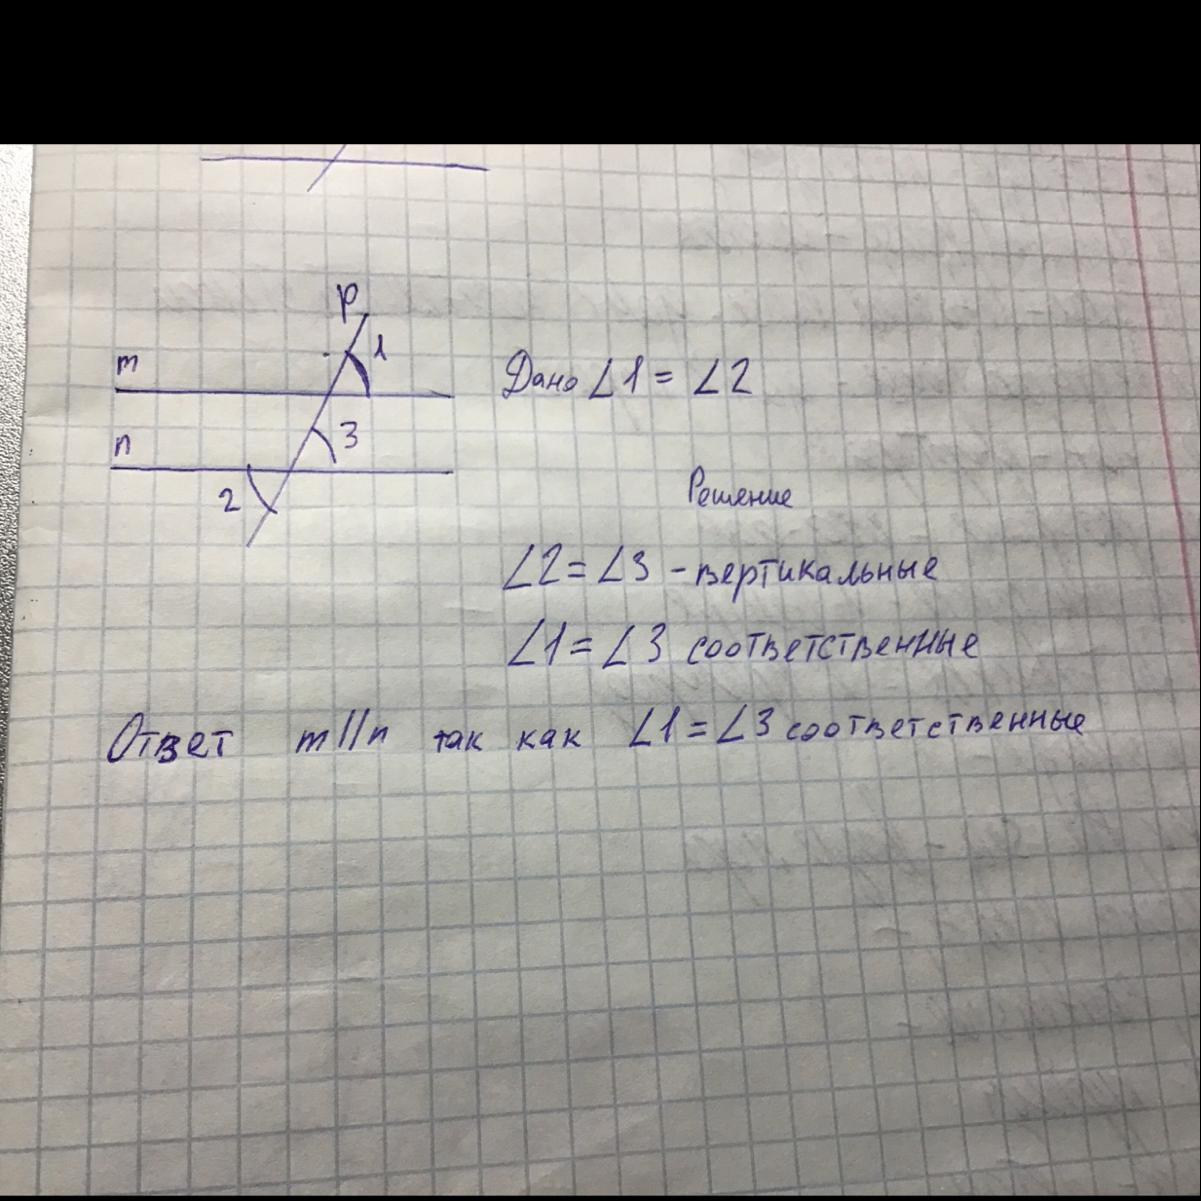 p
1
m
Дано ∠1 = ∠2
n
3
2
Решение
∠2 = ∠3 - вертикальные
∠1 = ∠3 соответственные
Ответ m||n так как ∠1 = ∠3 соответственные